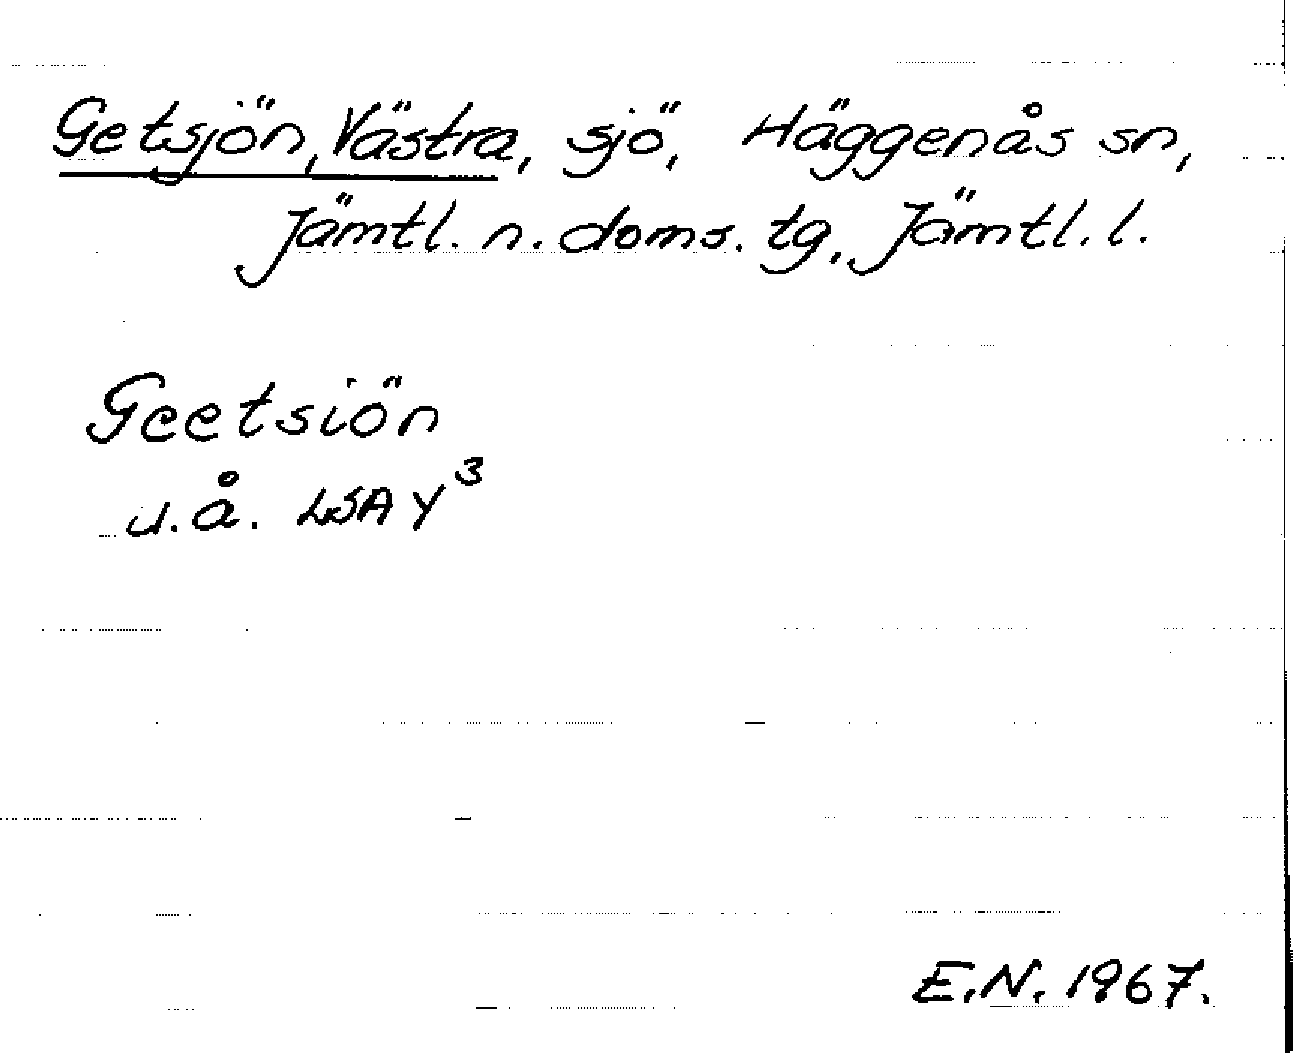 Getsjön, Västra, sjö, Häggenås sn,
Jämtl. n. doms. tg, Jämtl. l.
Geetsiön
u.å. LSA Y³
E.N. 1967.